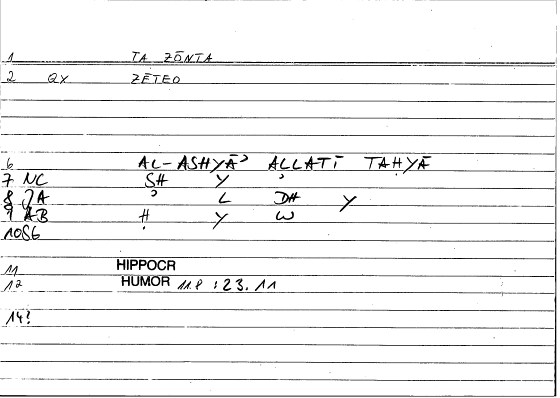 1 TA ZŌNTA
2 QX ZĒTEO
6 AL-ASHYĀʾ ALLATĪ TAḤYĀ
7 NC SH Y ʾ
8 JA ʾ L DH Y
9 AB Ḥ Y W
10 S6
11 HIPPOCR
12 HUMOR 11.8 : 23.11
14?